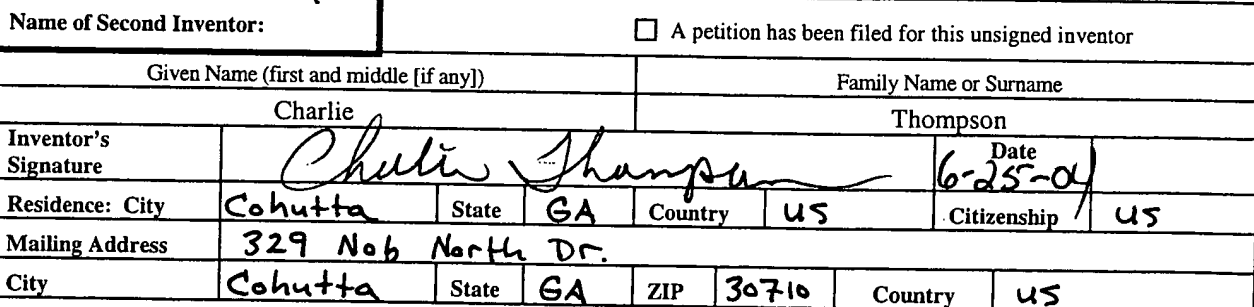 Name of Second Inventor:
☐ A petition has been filed for this unsigned inventor
Given Name (first and middle [if any]) Family Name or Surname
Charlie Thompson
Inventor's Signature Charlie Thompson Date 6-25-04
Residence: City Cohutta State GA Country US Citizenship US
Mailing Address 329 Nob North Dr.
City Cohutta State GA ZIP 30710 Country US